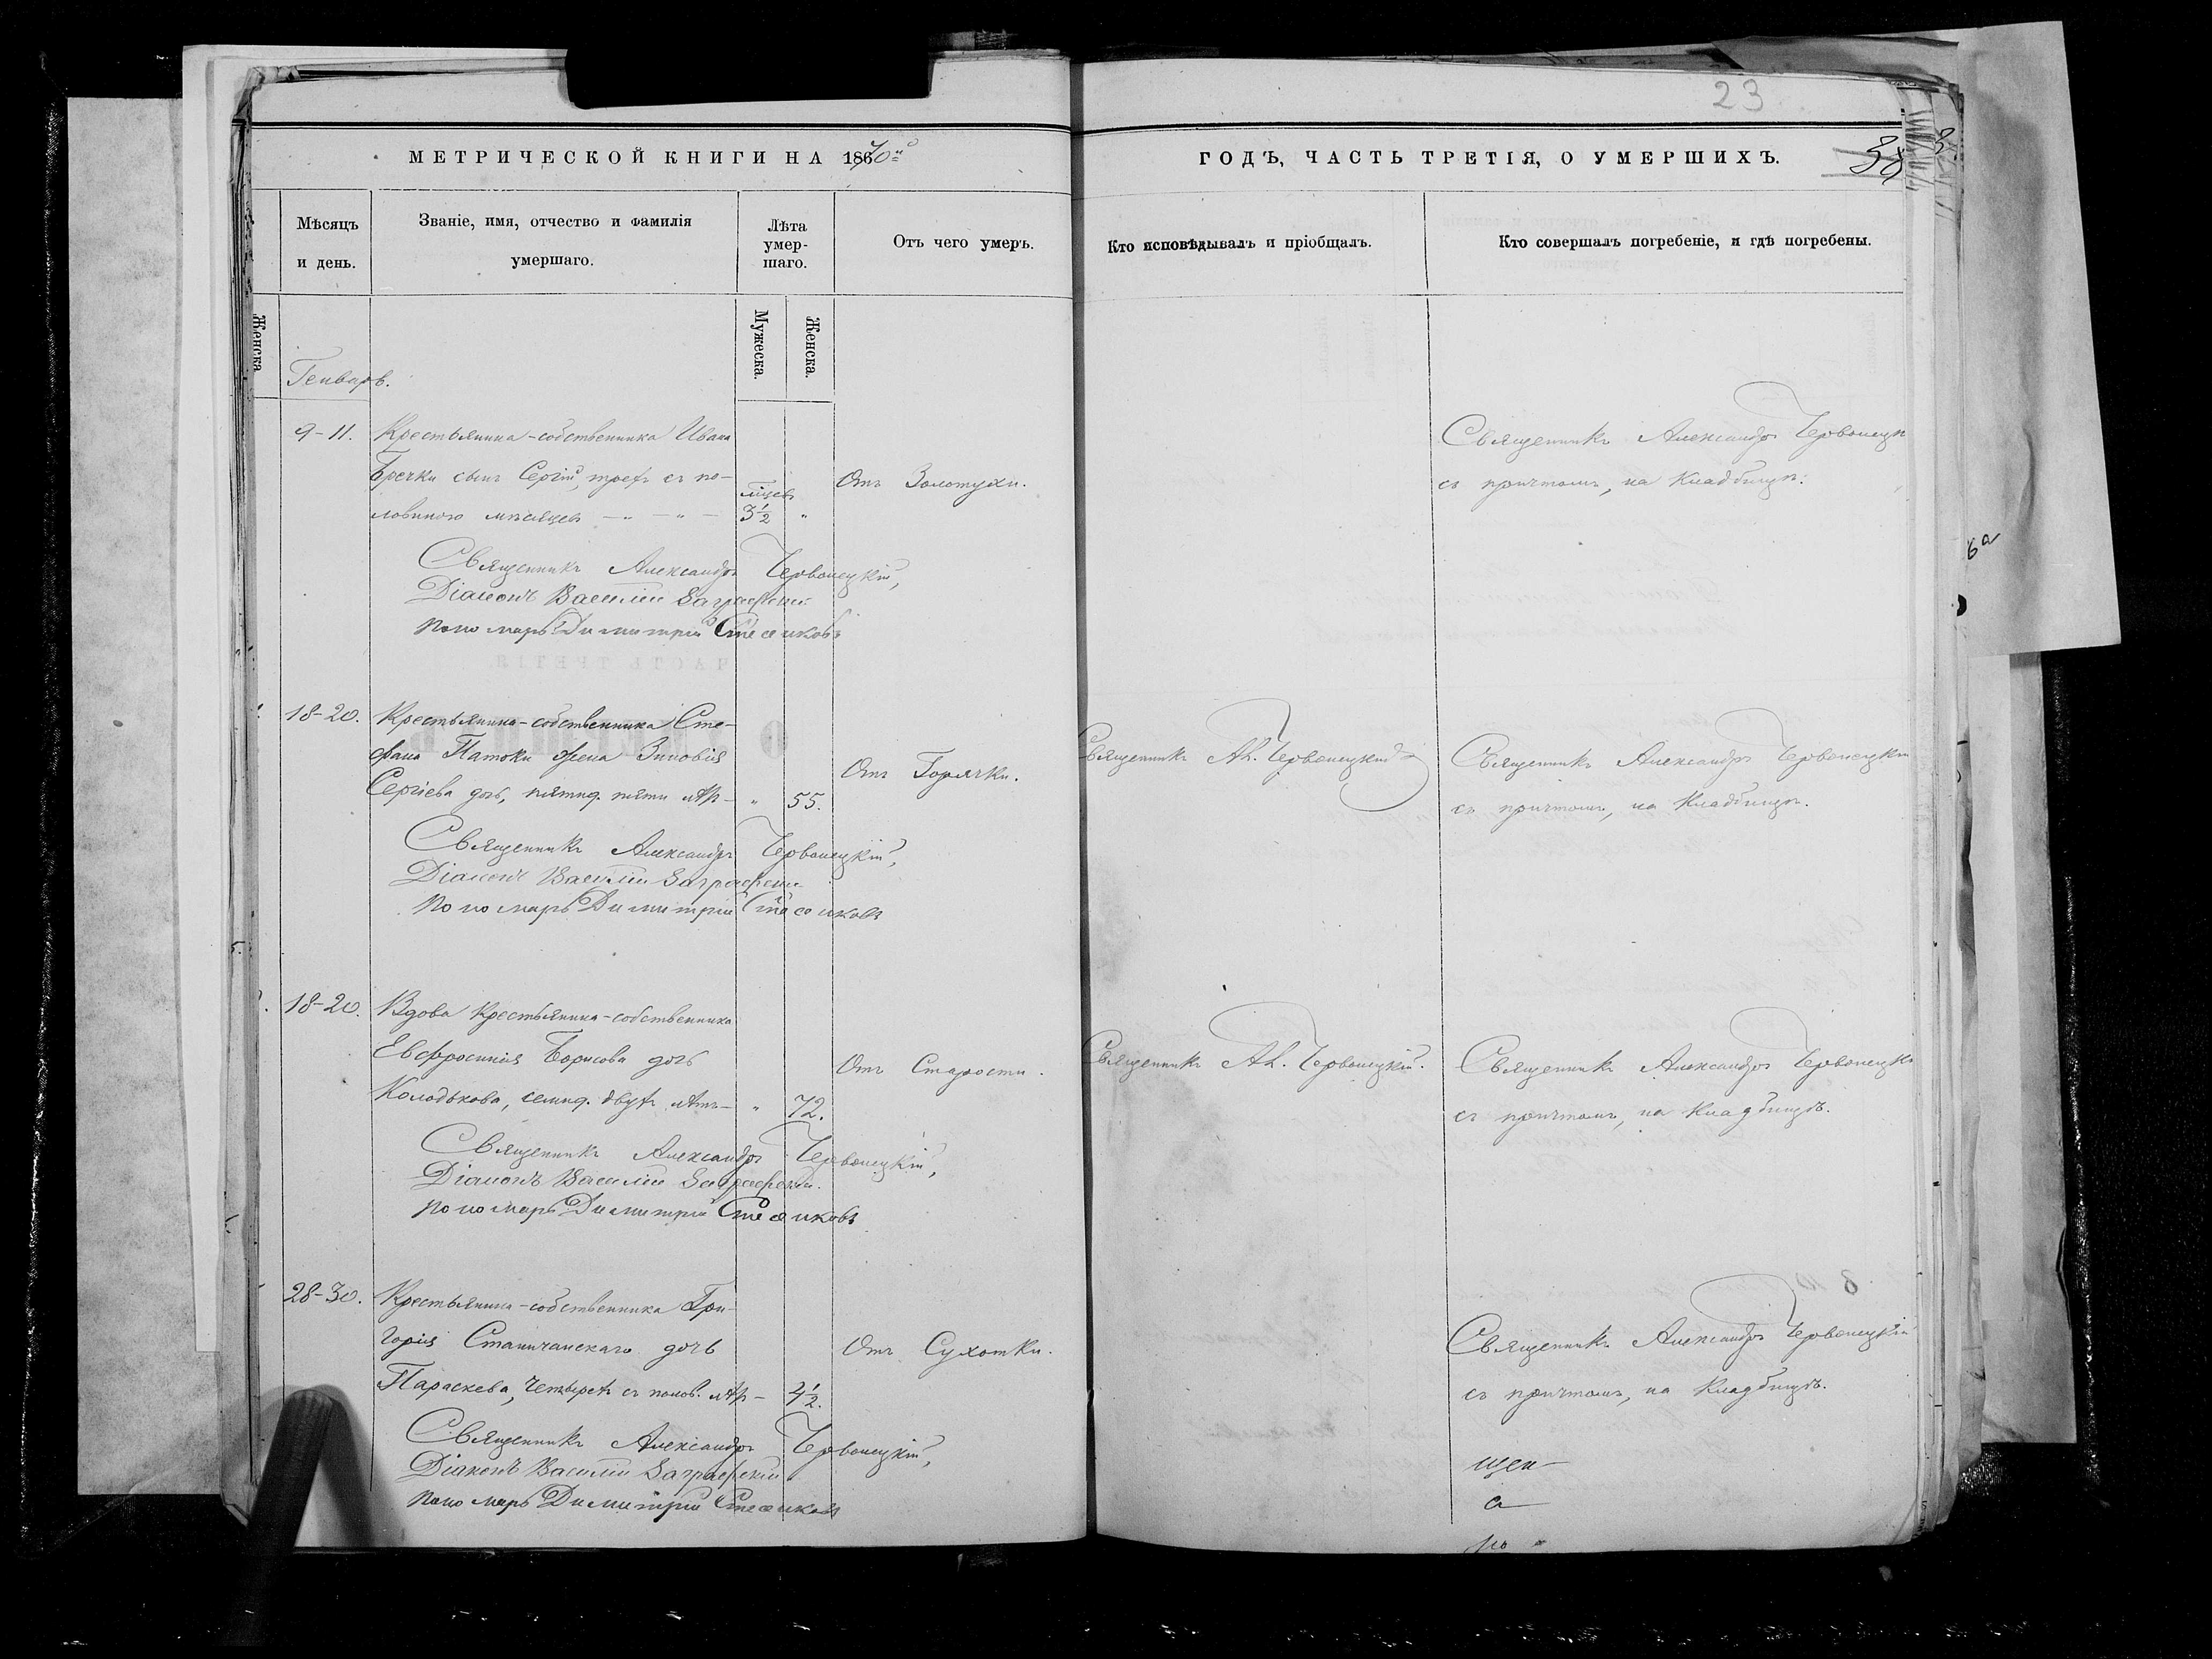 23
МЕТРИЧЕСКОЙ КНИГИ НА 1870й
ГОДЪ, ЧАСТЬ ТРЕТІЯ, О УМЕРШИХЪ.
Мѣсяцъ и день.
Званіе, имя, отчество и фамилія умершаго.
Лѣта умер-шаго.
Отъ чего умеръ.
Кто исповѣдывалъ и пріобщалъ.
Кто совершалъ погребеніе, и гдѣ погребены.
Женска
Мужеска.
Женска.
Генварь.
9-11. Крестьянина-собственника Ивана
Гречки сынъ Сергій, трехъ съ по-
ловиною мѣсяцевъ
3½ "
Отъ Золотухи.
Священникъ Александръ
съ причтомъ, на Кладбищѣ.
Священникъ Александръ Червонецкій,
Діаконъ Василій
Пономарь Димитрій
18-20. Крестьянина-собственника Сте-
фана Патоки жена Зиновія
Сергіева дочь, пятид. пяти лѣтъ - " 55.
Отъ Горячки.
Священникъ Ал. Червонецкій
Священникъ Александръ Червонецкій
съ причтомъ, на Кладбищѣ.
Священникъ Александръ Червонецкій,
Діаконъ Василій
Пономарь Димитрій
18-20. Вдова крестьянина-собственника
Евфросинія Борисова дочь
Колодькова, семид. двухъ лѣтъ - " 72.
Отъ Старости.
Священникъ Ал. Червонецкій.
Священникъ Александръ
съ причтомъ, на Кладбищѣ.
Священникъ Александръ Червонецкій,
Діаконъ Василій
Пономарь Димитрій
28-30. Крестьянина-собственника Гри-
горія Станичанскаго дочь
Параскева, четырехъ съ полов. лѣтъ - 4½.
Отъ Сухотки.
Священникъ Александръ Червонецкій
съ причтомъ, на Кладбищѣ.
Священникъ Александръ Червонецкій,
Діаконъ Василій
Пономарь Димитрій
щен
а